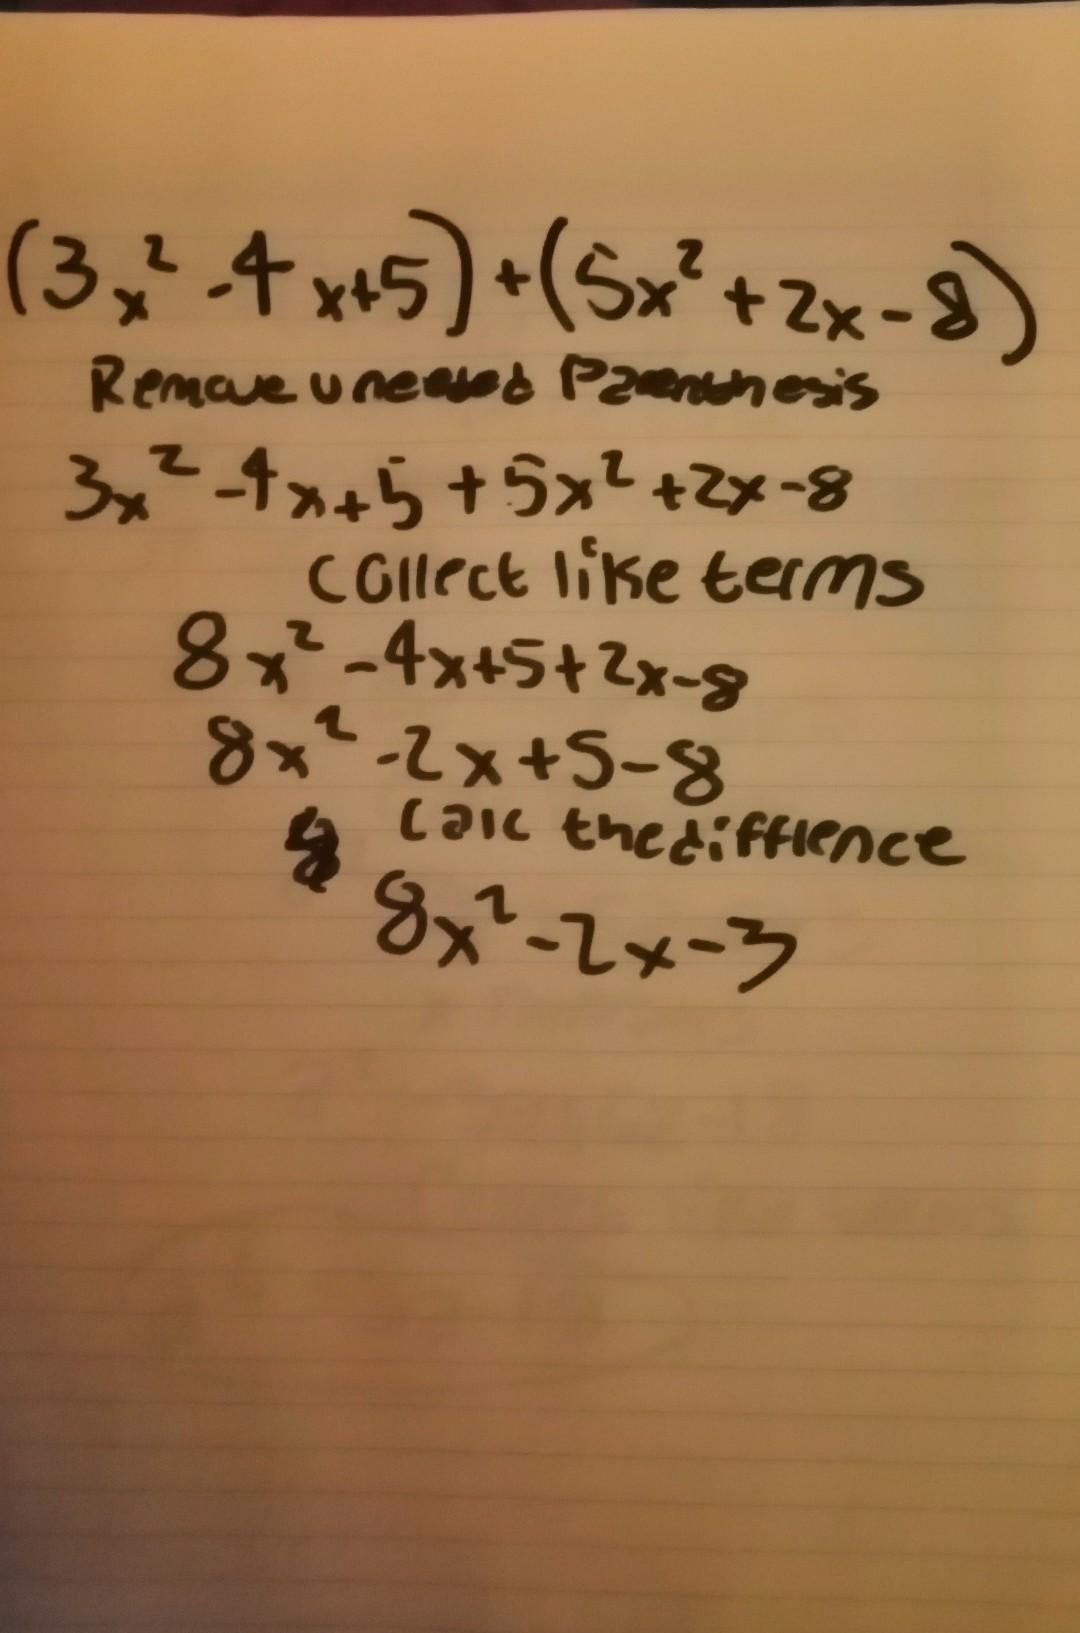 (3x² -4x+5)+(5x²+2x-8)
Remove uneeded Parenthesis
3x²-4x+5+5x²+2x-8
Collect like terms
8x²-4x+5+2x-8
8x²-2x+5-8
8 Calc the diffrence
8x²-2x-3